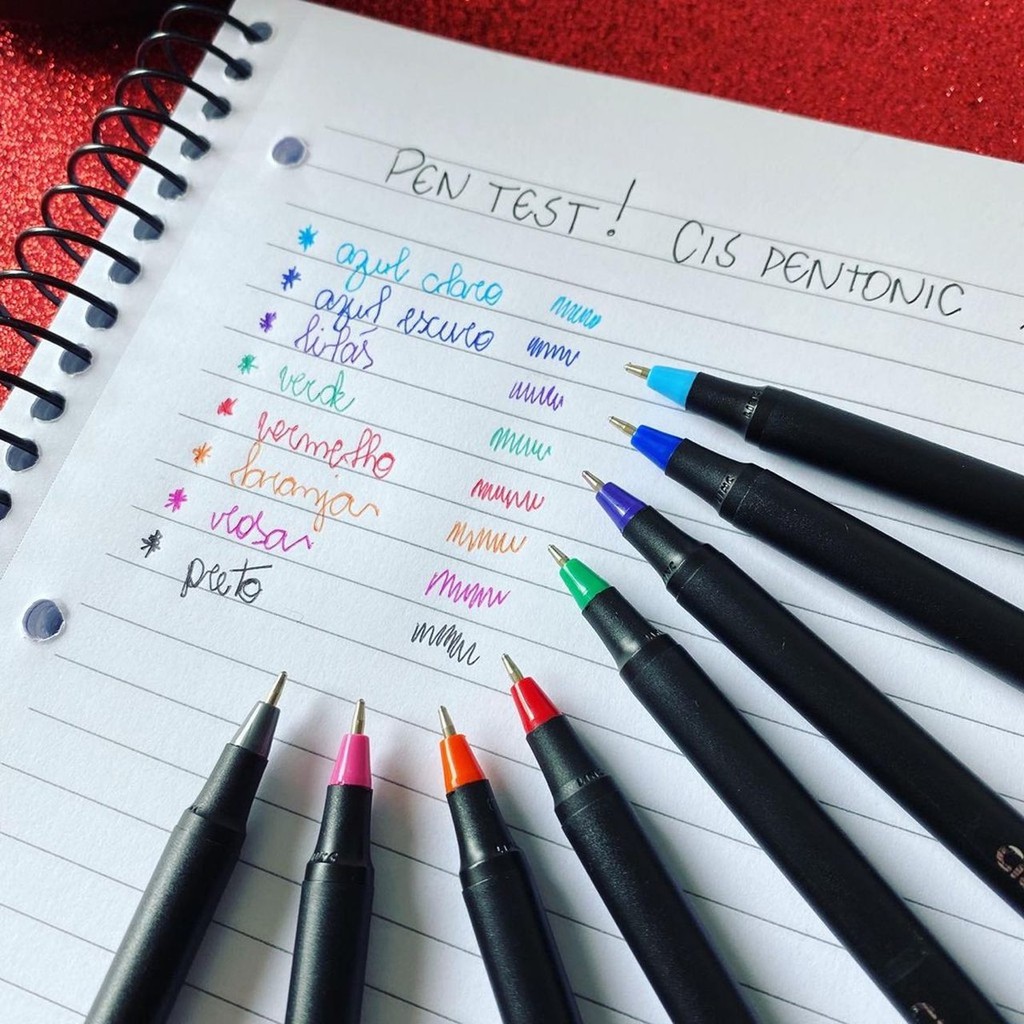 PEN TEST! CIS PENTONIC
* azul claro
* azul escuro
* lilás
* verde
* vermelho
* laranja
* rosa
* preto